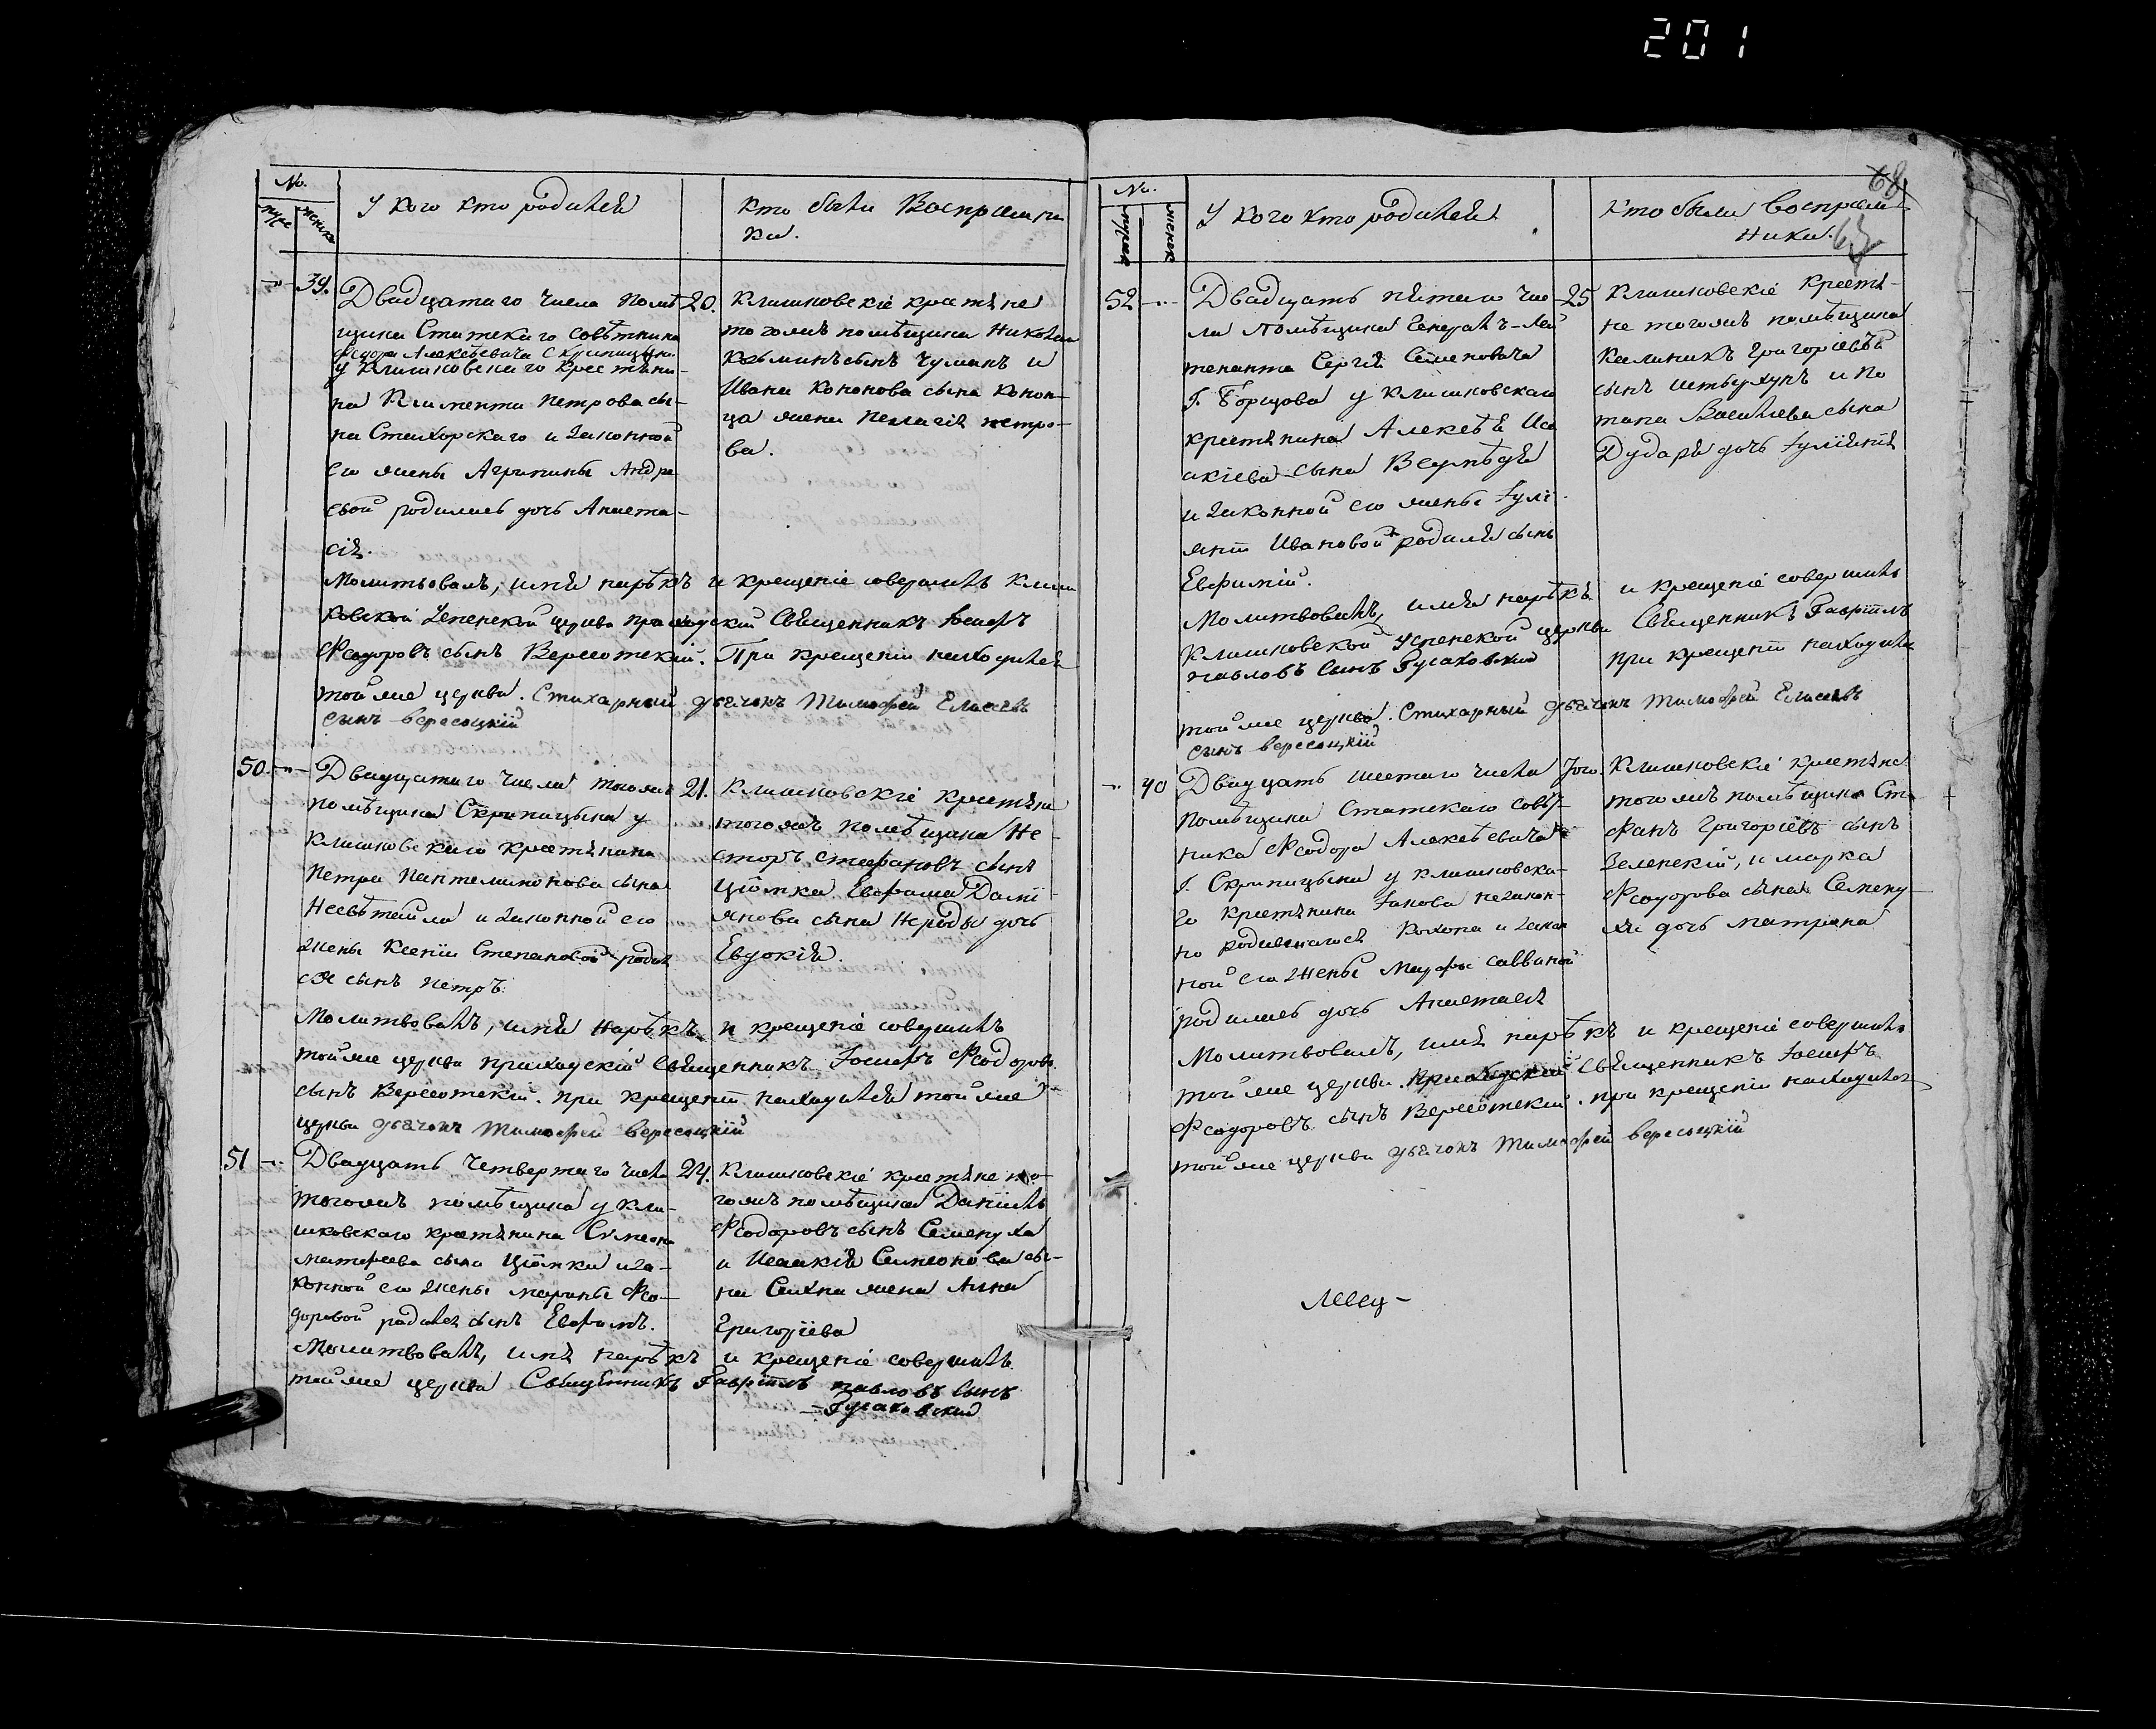 201
68
No.
муже
женска
У кого кто родилсѧ
кто были Восприемни
ки.
39.
Двадцатаго числа помѣ
щика Статскаго Совѣтника
Федора Алексѣевича Скрипицына
у Клишковскаго крестѧни-
на Климента Петрова сы-
на и законной
его жены Агрипины Андре
евой родилась дочь Анаста-
сіѧ.
20.
Клишковскіе крестѧне
тогожъ помѣщика Николай
Козьминъ сынъ Чуманъ и
Ивана Кононова сына Конон-
ца жена Пелагіѧ Петро-
ва.
Молитвовалъ, имѧ нарѣкъ и крещеніе совершилъ Клиш
ковской Успенской церкви приходскій Свѧщенникъ Іосифъ
Феодоровъ сынъ Вересотскій. При крещеніи находилсѧ
тойже церкви. Стихарный дьячокъ Тимофей Елисеевъ
сынъ Вересоцкій
50.
Двадцатаго числа тогожъ
помѣщика Скрипицына у
Клишковскаго крестѧнина
Петра Пантелимонова сына
и законной его
жены Ксеніи Степановой родил
сѧ сынъ Петръ.
21.
Клишковскіе крестѧне
тогожъ помѣщика Не
сторъ Стефановъ сынъ
Ціомка Евфима Дамі
янова сына Нероды дочь
Евдокіѧ.
Молитвовалъ, имѧ нарѣкъ и крещеніе совершилъ
тойже церкви приходскій Свѧщенникъ Іосифъ Феодоровъ
сынъ Вересотскій. При крещеніи находилсѧ тойже
церкви дьячокъ Тимофей Вересоцкій
51
Двадцать четвертаго числа
тогожъ помѣщика у Кли-
шковскаго крестѧнина Симеона
Матфеева сына Ціомки и за-
конной его жены Марины Фео-
доровой родилсѧ сынъ Евфимъ.
24.
Клишковскіе крестѧне то-
гожъ помѣщика Даніилъ
Феодоровъ сынъ Семенуха
и Исаакіѧ Симеонова сы-
на жена Анна
Григоріева
Молитвовалъ, имѧ нарѣкъ и крещеніе совершилъ
тойже церкви Свѧщенникъ Гавріилъ Павловъ сынъ
Гусаковский
No.
мужеск
женск
У кого кто родилсѧ
Кто были Восприем-
ники.
52
Двадцать пѧтаго чис
ла помѣщика Генералъ-Лей
тенанта Сергѧ Семеновича
Г. Борщова у Клишковскаго
крестѧнина Алексѣѧ Иса
акіева сына
и законной его жены Іулі
яніи Ивановой родилсѧ сынъ
Евфимій.
25
Клишковскіе крестѧ-
не тогожъ помѣщика
Калиникъ Григоріевъ
сынъ и По
тапа Васильева сына
Дударѧ дочь Іуліянiѧ
Молитвовалъ, имѧ нарѣкъ и крещеніе совершилъ
Клишковской Успенской церкви Свѧщенникъ Гавріилъ
Павловъ сынъ Гусаковский при крещеніи находилсѧ
тойже церкви. Стихарный дьячокъ Тимофей Елисеевъ
сынъ Вересоцкій
40
Двадцать шестаго числа
помѣщика Статскаго Совѣт-
ника Феодора Алексѣевича
Г. Скрипицына у Клишковска-
го крестѧнина Іакова незакон-
но родившагосѧ и закон
ной его жены Марфы Саввиной
родилась дочь Анастасіѧ
Клишковскіе крестѧне
тогожъ помѣщика Сте
фанъ Григоріевъ сынъ
Зеленскій, и Марка
Феодорова сына Семену-
хи дочь Матрона
Молитвовалъ, имѧ нарѣкъ и крещеніе совершилъ
тойже церкви. приходскій Свѧщенникъ Іосифъ
Феодоровъ сынъ Вересотскій. при крещеніи находилсѧ
тойже церкви дьячокъ Тимофей Вересоцкій